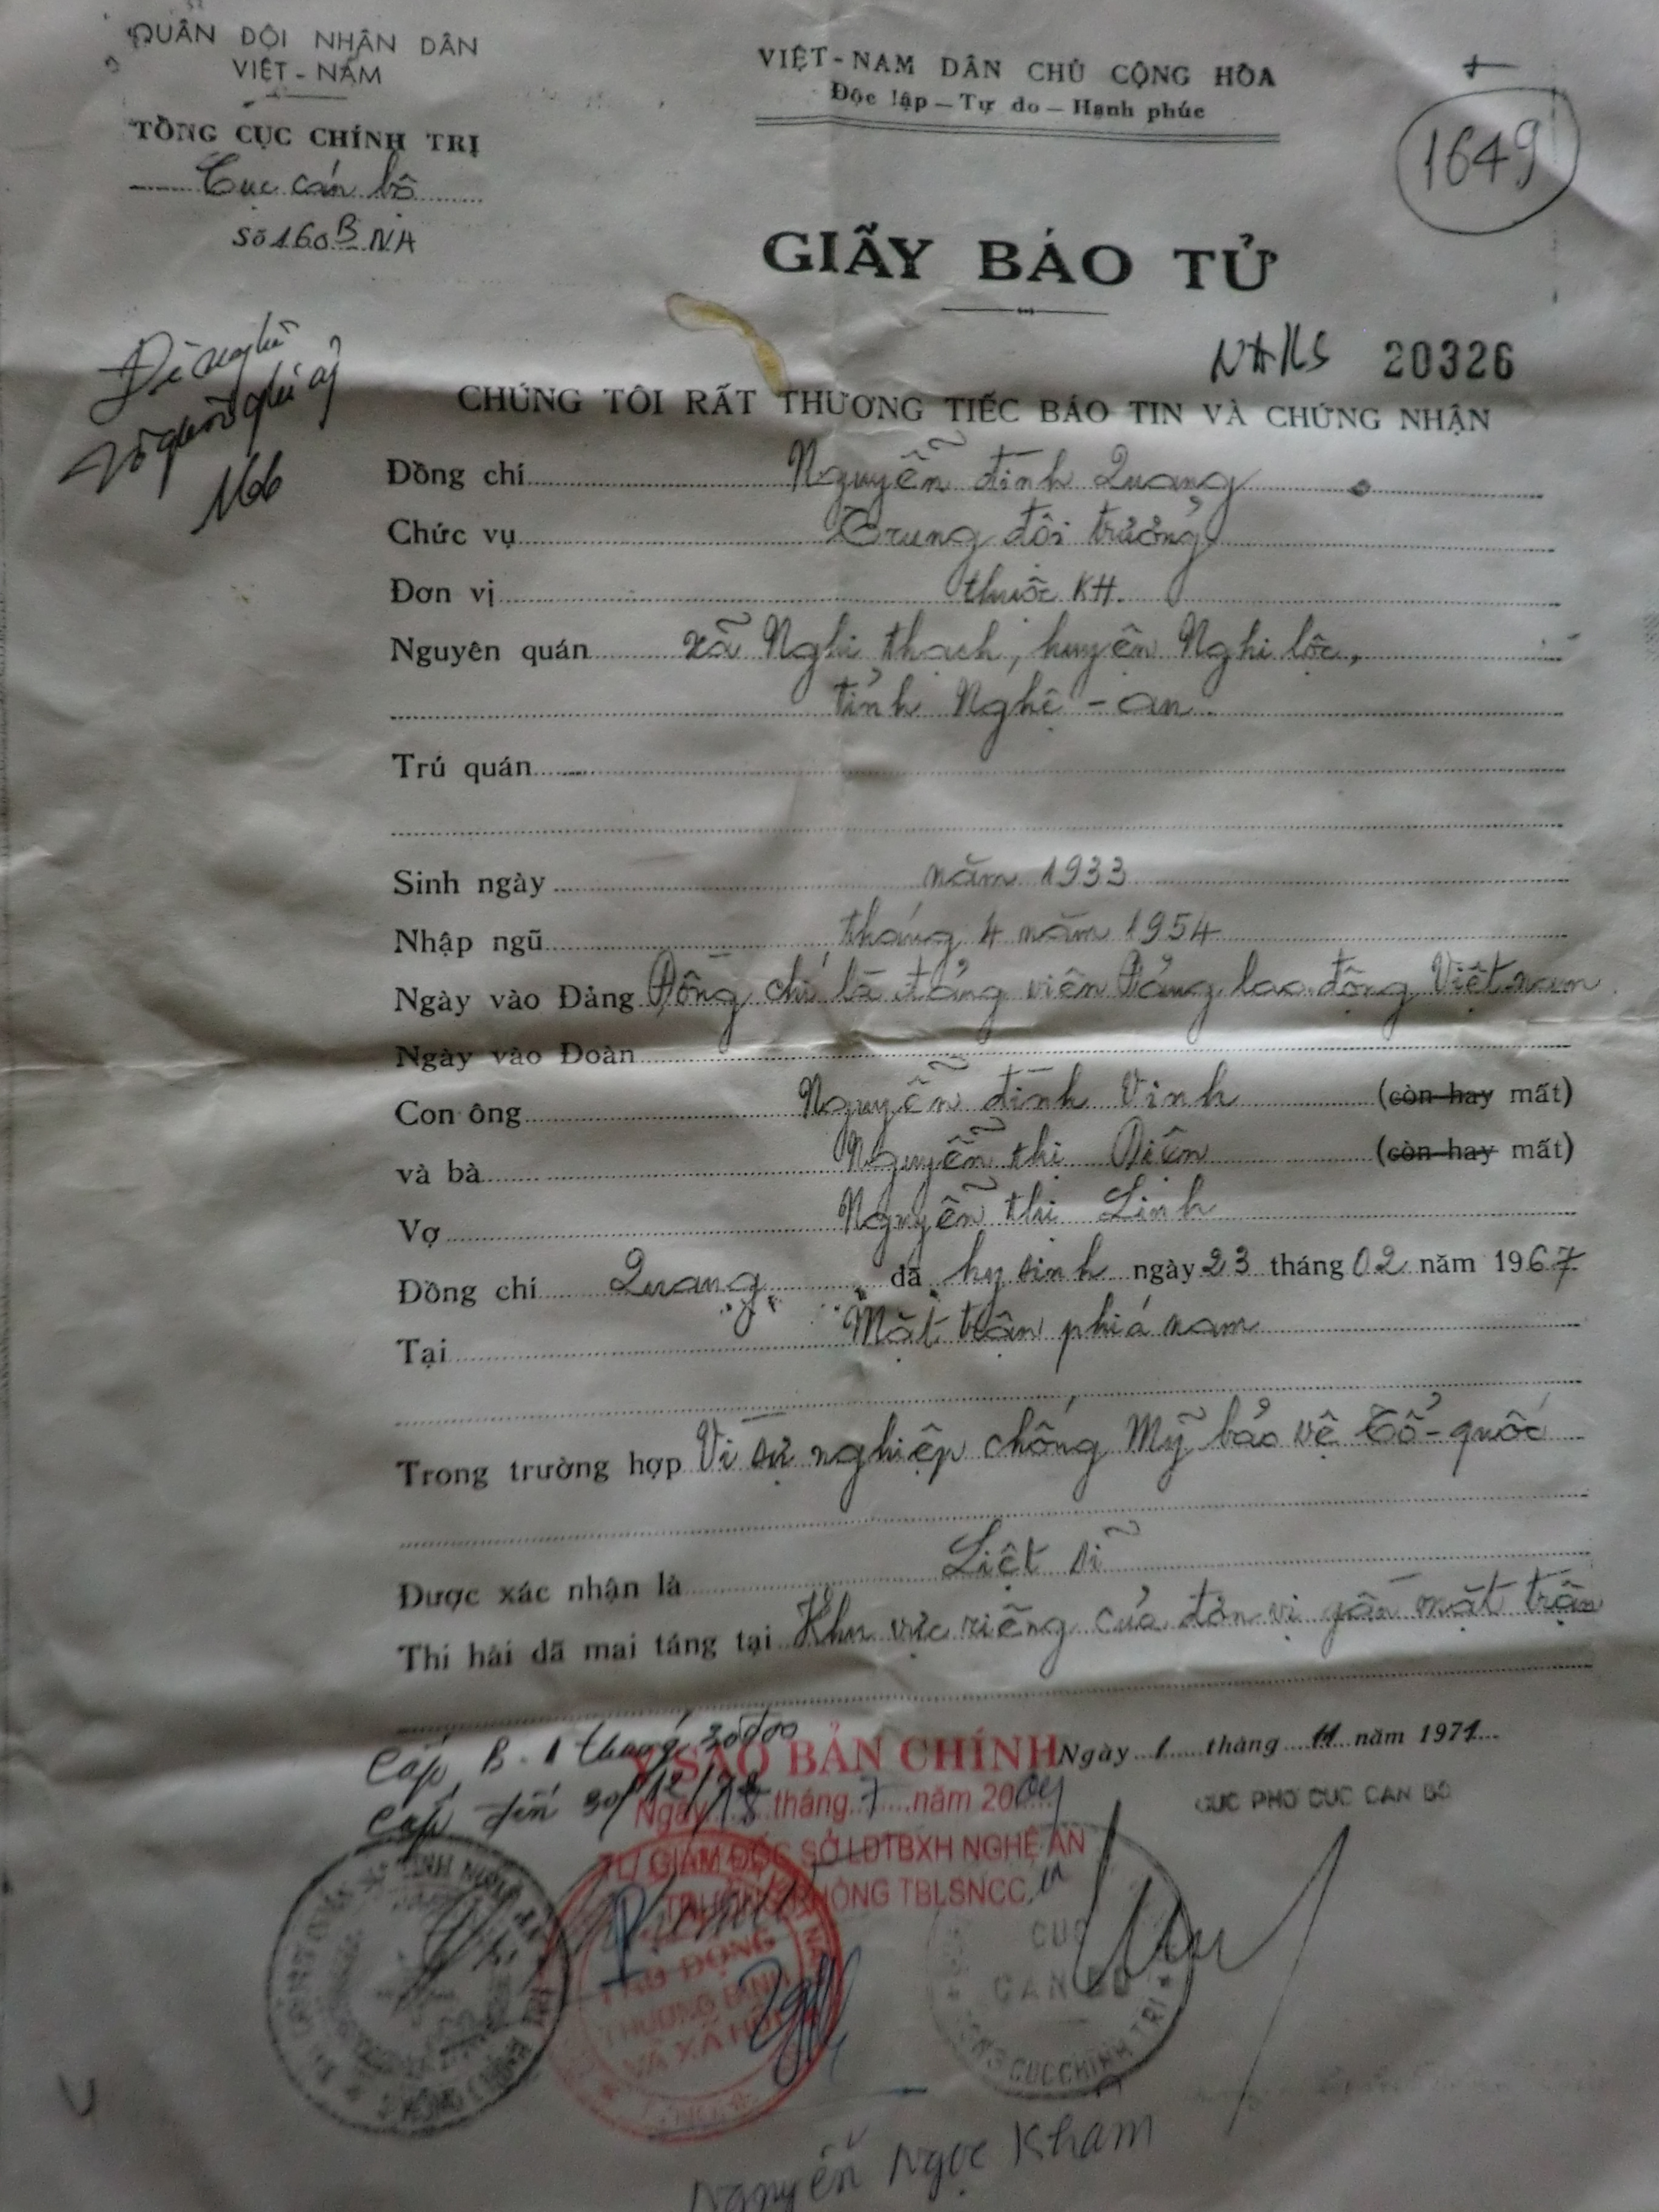 QUÂN ĐỘI NHÂN DÂN
VIỆT-NAM
TỔNG CỤC CHÍNH TRỊ
Cục cán bộ
Số 160 B NA
VIỆT-NAM DÂN CHỦ CỘNG HÒA
Độc lập — Tự do — Hạnh phúc
1649
GIẤY BÁO TỬ
20326
Đề nghị
CHÚNG TÔI RẤT THƯƠNG TIẾC BÁO TIN VÀ CHỨNG NHẬN
Đồng chí Nguyễn đình Quang
Chức vụ Trung đội trưởng
Đơn vị thuộc KH.
Nguyên quán xã Nghi thạch, huyện Nghi lộc,
tỉnh Nghệ-an
Trú quán
Sinh ngày năm 1933
Nhập ngũ tháng 4 năm 1954
Ngày vào Đảng Đồng chí là đảng viên Đảng lao động Việt nam
Ngày vào Đoàn
Con ông Nguyễn đình Vinh (còn hay mất)
và bà Nguyễn thị Diên (còn hay mất)
Vợ Nguyễn thị Linh
Đồng chí Quang đã hy sinh ngày 23 tháng 02 năm 1967
Tại Mặt trận phía nam
Trong trường hợp Vì sự nghiệp chống Mỹ bảo vệ Tổ-quốc
Được xác nhận là Liệt sĩ
Thi hài đã mai táng tại Khu vực riêng của đơn vị gần mặt trận
Cấp B. 1 tháng
Cấp đến 30/12/
SAO BẢN CHÍNH
Ngày 18 tháng 7 năm 2004
Ngày 1 tháng 11 năm 1971
CỤC PHÓ CỤC CÁN BỘ
TU GIÁM ĐỐC SỞ LĐTBXH NGHỆ AN
TRƯỞNG PHÒNG TBLSNCC
ĐỘNG
THƯƠNG BINH
VÀ XÃ HỘI
CỤC
CÁN BỘ
CỤC CHÍNH TRỊ
Nguyễn Ngọc Kham